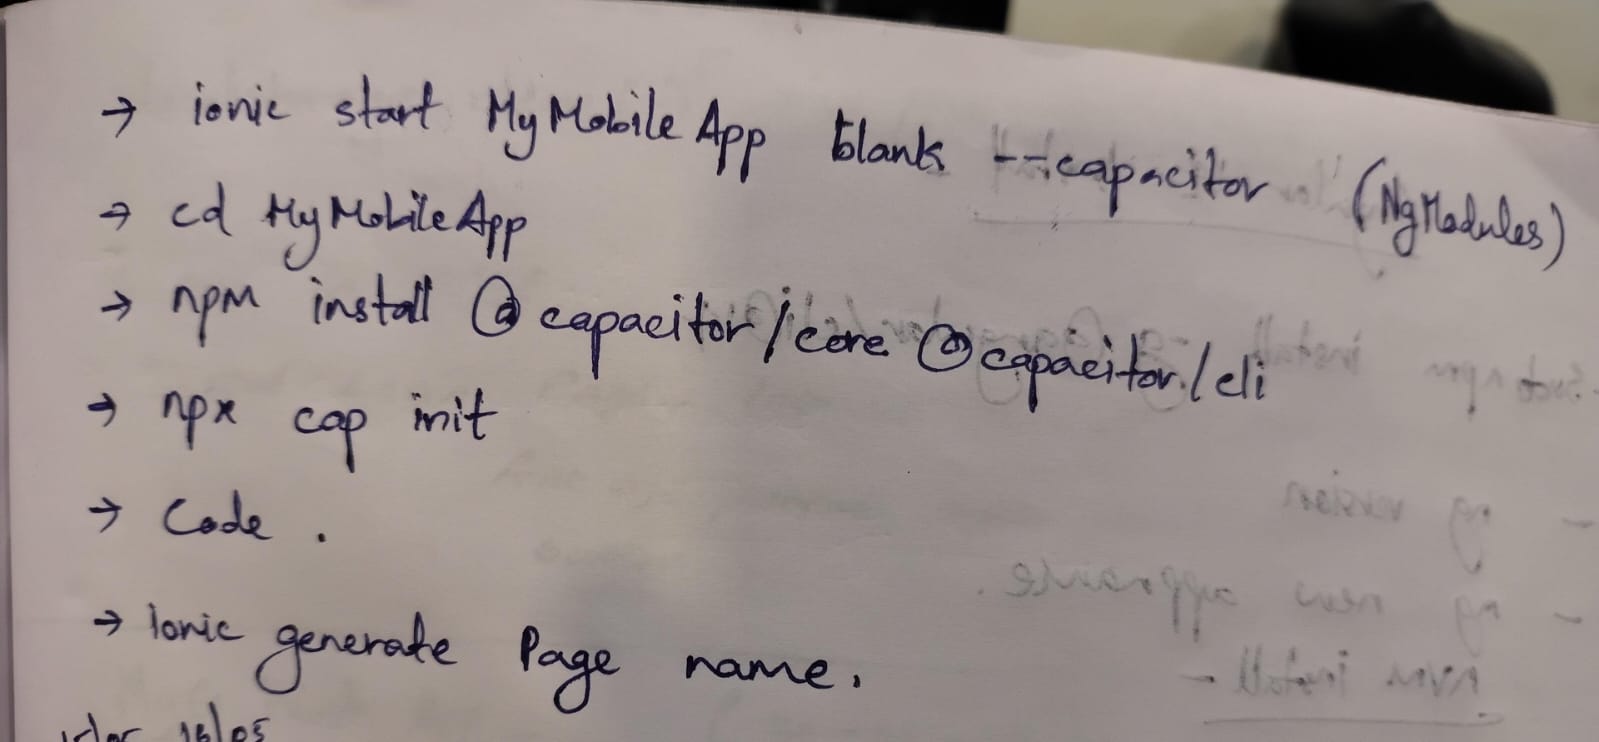 → ionic start MyMobileApp blank --capacitor (NgModules)
→ cd MyMobileApp
→ npm install @capacitor/core @capacitor/cli
→ npx cap init
→ Code .
→ Ionic generate Page name.
16/05
ng version
ng new
npm install